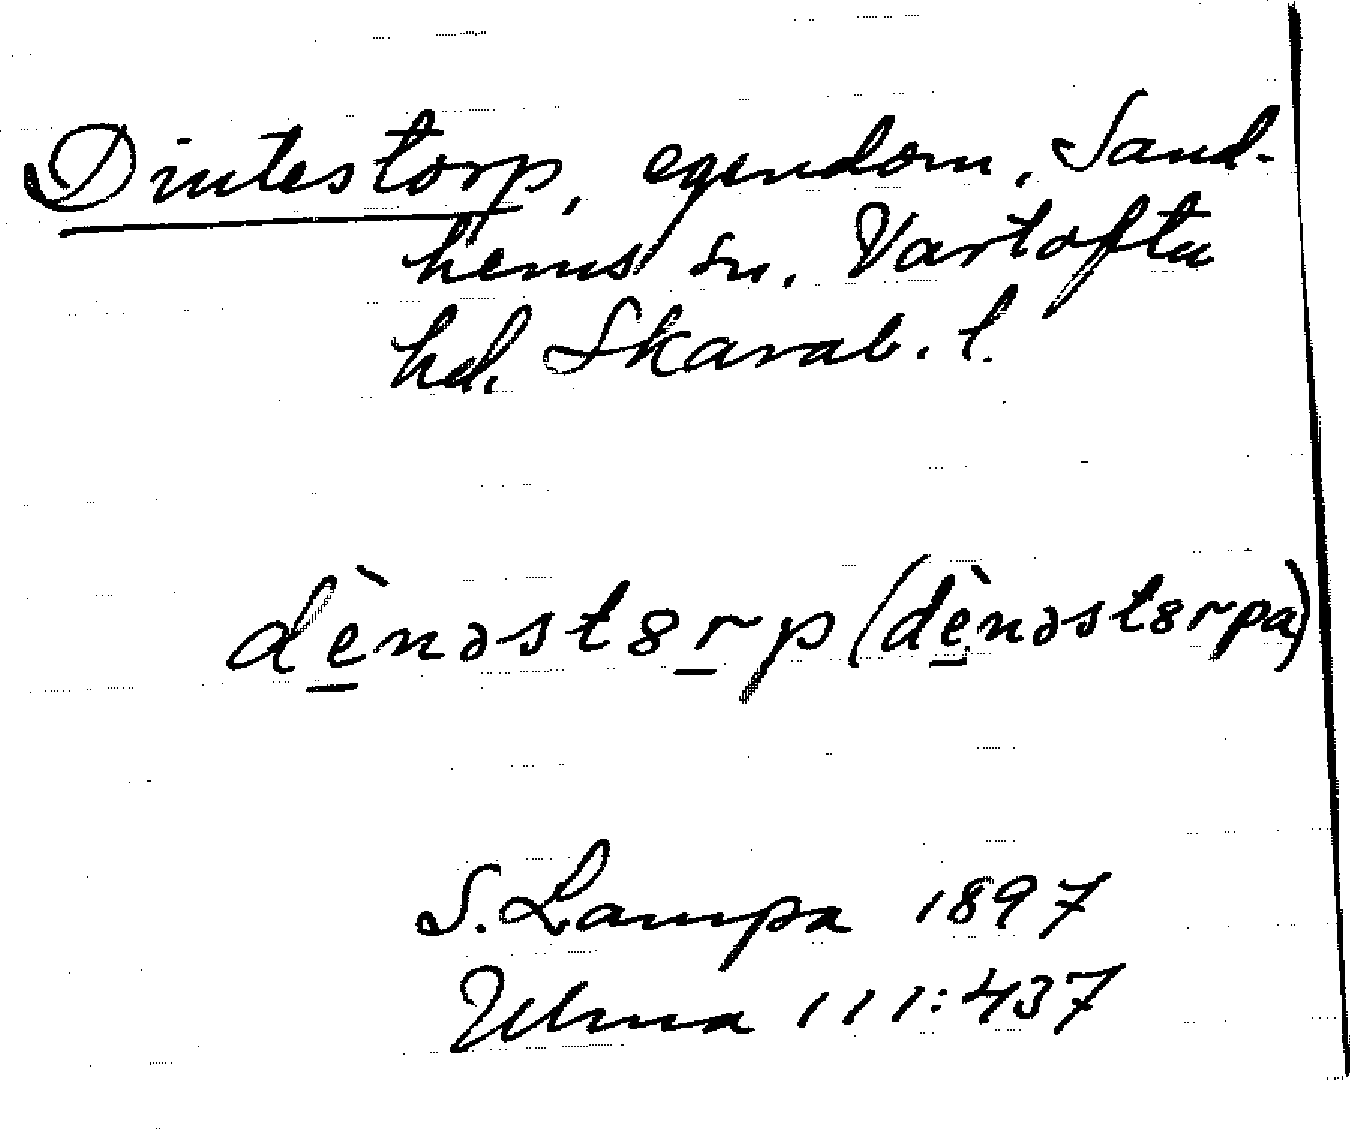 Dintestorp, egendom, Sand-
hems sn. Vartofta
hd. Skarab. l.
dè̱nəst8ṟp (dè̱nəst8rpa)
S. Lampa 1897
Ulma 111:437